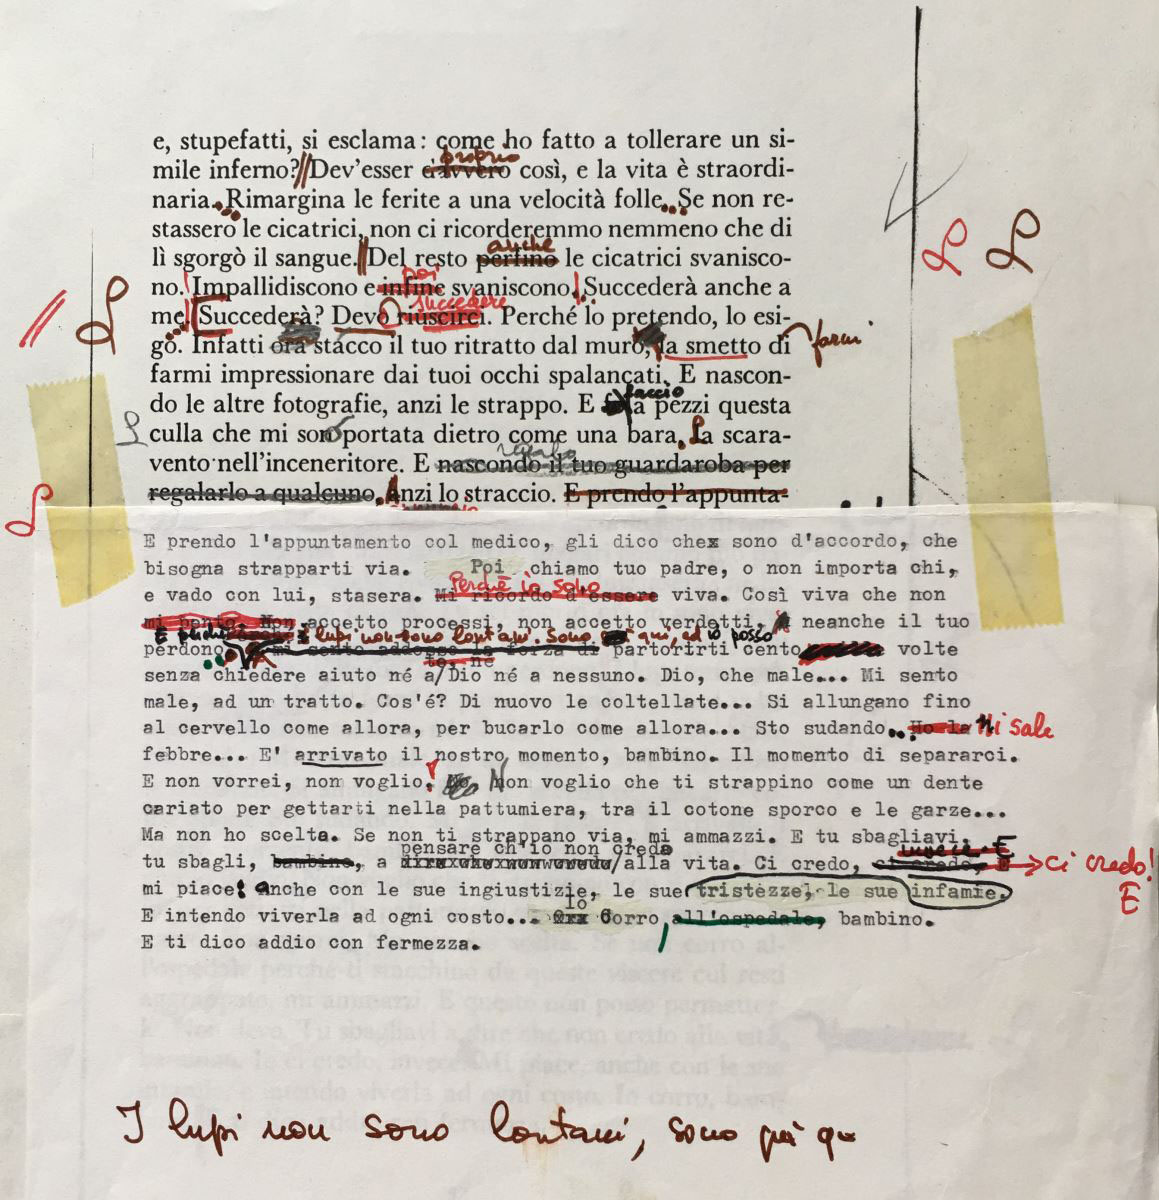 e, stupefatti, si esclama: come ho fatto a tollerare un si-
proprio
mile inferno?// Dev'esser davvero così, e la vita è straordi-
naria... Rimargina le ferite a una velocità folle... Se non re-
stassero le cicatrici, non ci ricorderemmo nemmeno che di
anche
lì sgorgò il sangue.// Del resto perfino le cicatrici svanisco-
poi
no. Impallidiscono e infine svaniscono. Succederà anche a
succedere
me! Succederà? Devo riuscirci. Perché lo pretendo, lo esi-
go. Infatti ora stacco il tuo ritratto dal muro, la smetto di farmi
farmi impressionare dai tuoi occhi spalancati. E nascon-
faccio
do le altre fotografie, anzi le strappo. E a pezzi questa
culla che mi son portata dietro come una bara. La scara-
regalo
vento nell'inceneritore. E nascondo il tuo guardaroba per
regalarlo a qualcuno, Anzi lo straccio. E prendo l'appunta-
E prendo l'appuntamento col medico, gli dico chex sono d'accordo, che
bisogna strapparti via. Poi chiamo tuo padre, o non importa chi,
Perché io sono
e vado con lui, stasera. Mi ricordo d'essere viva. Così viva che non
mi pento. Non accetto processi, non accetto verdetti, neanche il tuo
E perché i lupi non sono lontani. Sono qui, ed io posso
perdono mi sento addosso la forza di partorirti cento volte
te, né
senza chiedere aiuto né a/Dio né a nessuno. Dio, che male... Mi sento
male, ad un tratto. Cos'é? Di nuovo le coltellate... Si allungano fino
al cervello come allora, per bucarlo come allora... Sto sudando... Ho la Mi sale
febbre... E' arrivato il nostro momento, bambino. Il momento di separarci.
E non vorrei, non voglio! Non voglio che ti strappino come un dente
cariato per gettarti nella pattumiera, tra il cotone sporco e le garze...
Ma non ho scelta. Se non ti strappano via, mi ammazzi. E tu sbagliavi,
pensare ch'io non creda
invece. E
tu sbagli, bambino, a /alla vita. Ci credo, ci credo, E ci credo!
mi piace! anche con le sue ingiustizie, le sue tristezze, le sue infamie.
E
Io
E intendo viverla ad ogni costo... Corro, all'ospedale, bambino.
E ti dico addio con fermezza.
I lupi non sono lontani, sono già qu